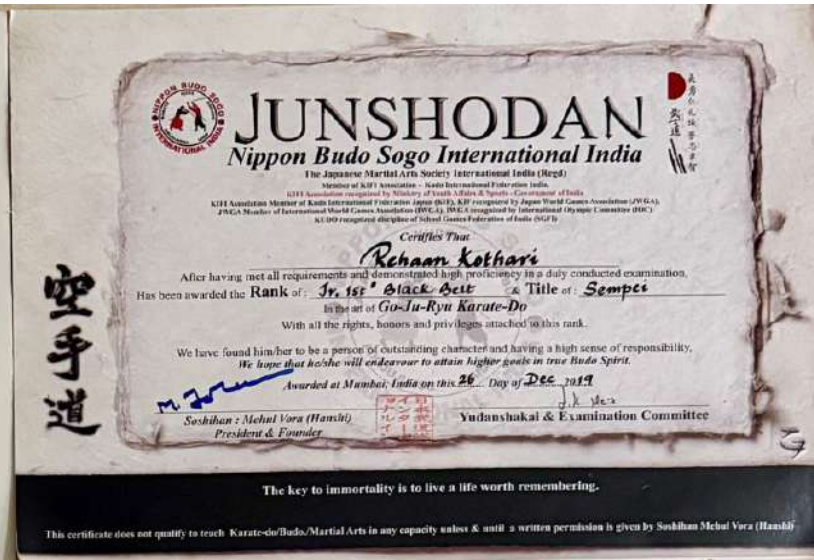 NIPPON BUDO SOGO
INTERNATIONAL INDIA
JUNSHODAN
Nippon Budo Sogo International India
The Japanese Martial Arts Society International India (Regd)
Member of KIFI Association - Kudo International Federation India.
KIFI Association recognized by Ministry of Youth Affairs & Sports - Government of India
KIFI Association Member of Kudo International Federation Japan (KIF), KIF recognized by Japan World Games Association (JWGA),
JWGA Member of International World Games Association (IWGA), IWGA recognized by International Olympic Committee (IOC)
KUDO recognized discipline of School Games Federation of India (SGFI)
Certifies That
Rehaan Kothari
After having met all requirements and demonstrated high proficiency in a duly conducted examination,
Has been awarded the Rank of : Jr. 1st Black Belt & Title of : Sempei
In the art of Go-Ju-Ryu Karate-Do
With all the rights, honors and privileges attached to this rank.
We have found him/her to be a person of outstanding character and having a high sense of responsibility,
We hope that he/she will endeavour to attain higher goals in true Budo Spirit.
Awarded at Mumbai, India on this 26 Day of Dec 2019
Soshihan : Mehul Vora (Hanshi)
President & Founder
Yudanshakai & Examination Committee
空手道
武士道
The key to immortality is to live a life worth remembering.
This certificate does not qualify to teach Karate-do/Budo./Martial Arts in any capacity unless & until a written permission is given by Soshihan Mehul Vora (Hanshi)